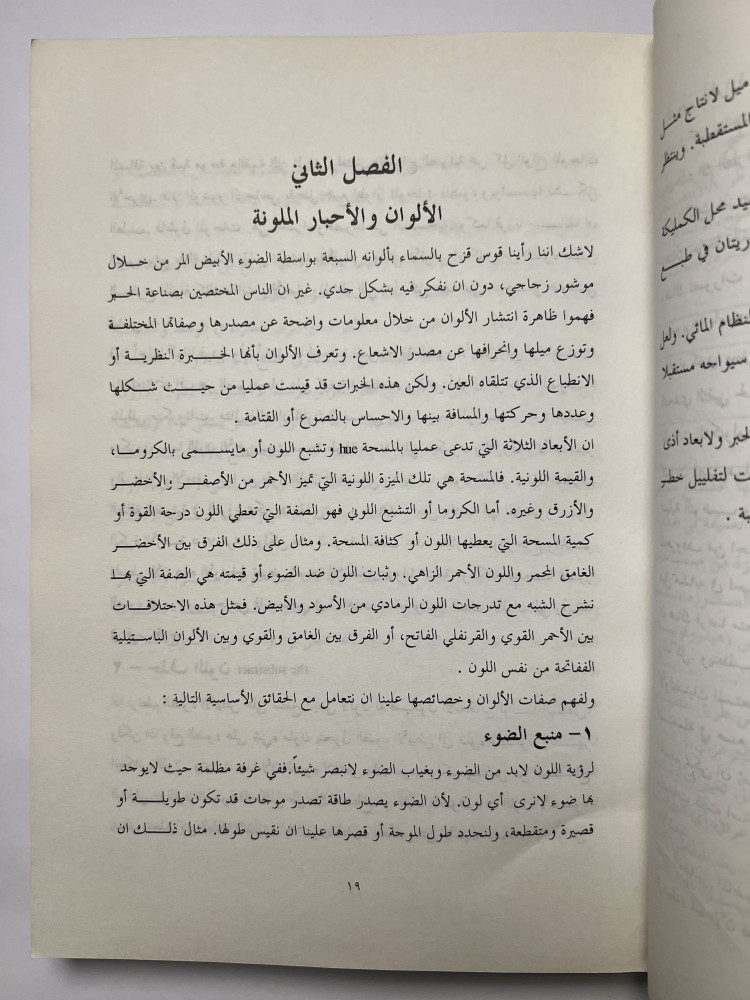 الفصل الثاني
الألوان والأحبار الملونة
لاشك اننا رأينا قوس قزح بالسماء بألوانه السبعة بواسطة الضوء الأبيض المر من خلال
موشور زجاجي، دون ان نفكر فيه بشكل جدي. غير ان الناس المختصين بصناعة الحبر
فهموا ظاهرة انتشار الألوان من خلال معلومات واضحة عن مصدرها وصفاتها المختلفة
وتوزع ميلها وانحرافها عن مصدر الاشعاع. وتعرف الألوان بأنها الخبرة النظرية أو
الانطباع الذي تتلقاه العين. ولكن هذه الخبرات قد قيست عمليا من حيث شكلها
وعددها وحركتها والمسافة بينها والاحساس بالنصوع أو القتامة .
ان الأبعاد الثلاثة التي تدعى عمليا بالمسحة hue وتشبع اللون أو مايسمى بالكروما،
والقيمة اللونية. فالمسحة هي تلك الميزة اللونية التي تميز الأحمر من الأصفر والأخضر
والأزرق وغيره. أما الكروما أو التشبع اللوني فهو الصفة التي تعطي اللون درجة القوة أو
كمية المسحة التي يعطيها اللون أو كثافة المسحة. ومثال على ذلك الفرق بين الأخضر
الغامق المحمر واللون الأحمر الزاهي. وثبات اللون ضد الضوء أو قيمته هي الصفة التي بها
نشرح الشبه مع تدرجات اللون الرمادي من الأسود والأبيض. فمثل هذه الاختلافات
بين الأحمر القوي والقرنفلي الفاتح، أو الفرق بين الغامق والقوي وبين الألوان الباستيلية
الففاتحة من نفس اللون .
ولفهم صفات الألوان وخصائصها علينا ان نتعامل مع الحقائق الأساسية التالية :
١- منبع الضوء
لرؤية اللون لابد من الضوء وبغياب الضوء لانبصر شيئاً.ففي غرفة مظلمة حيث لايوجد
بها ضوء لانرى أي لون. لأن الضوء يصدر طاقة تصدر موجات قد تكون طويلة أو
قصيرة ومتقطعة، ولنحدد طول الموجة أو قصرها علينا ان نقيس طولها. مثال ذلك ان
١٩
ميل لانتاج مثل
المستقطبة. وينتظر
محل الكمليكة
ريتان في طبع
لنظام المائي. ولعل
سيواجه مستقبلا
لحبر ولابعاد أذى
ت لتفليل خطر
بة .